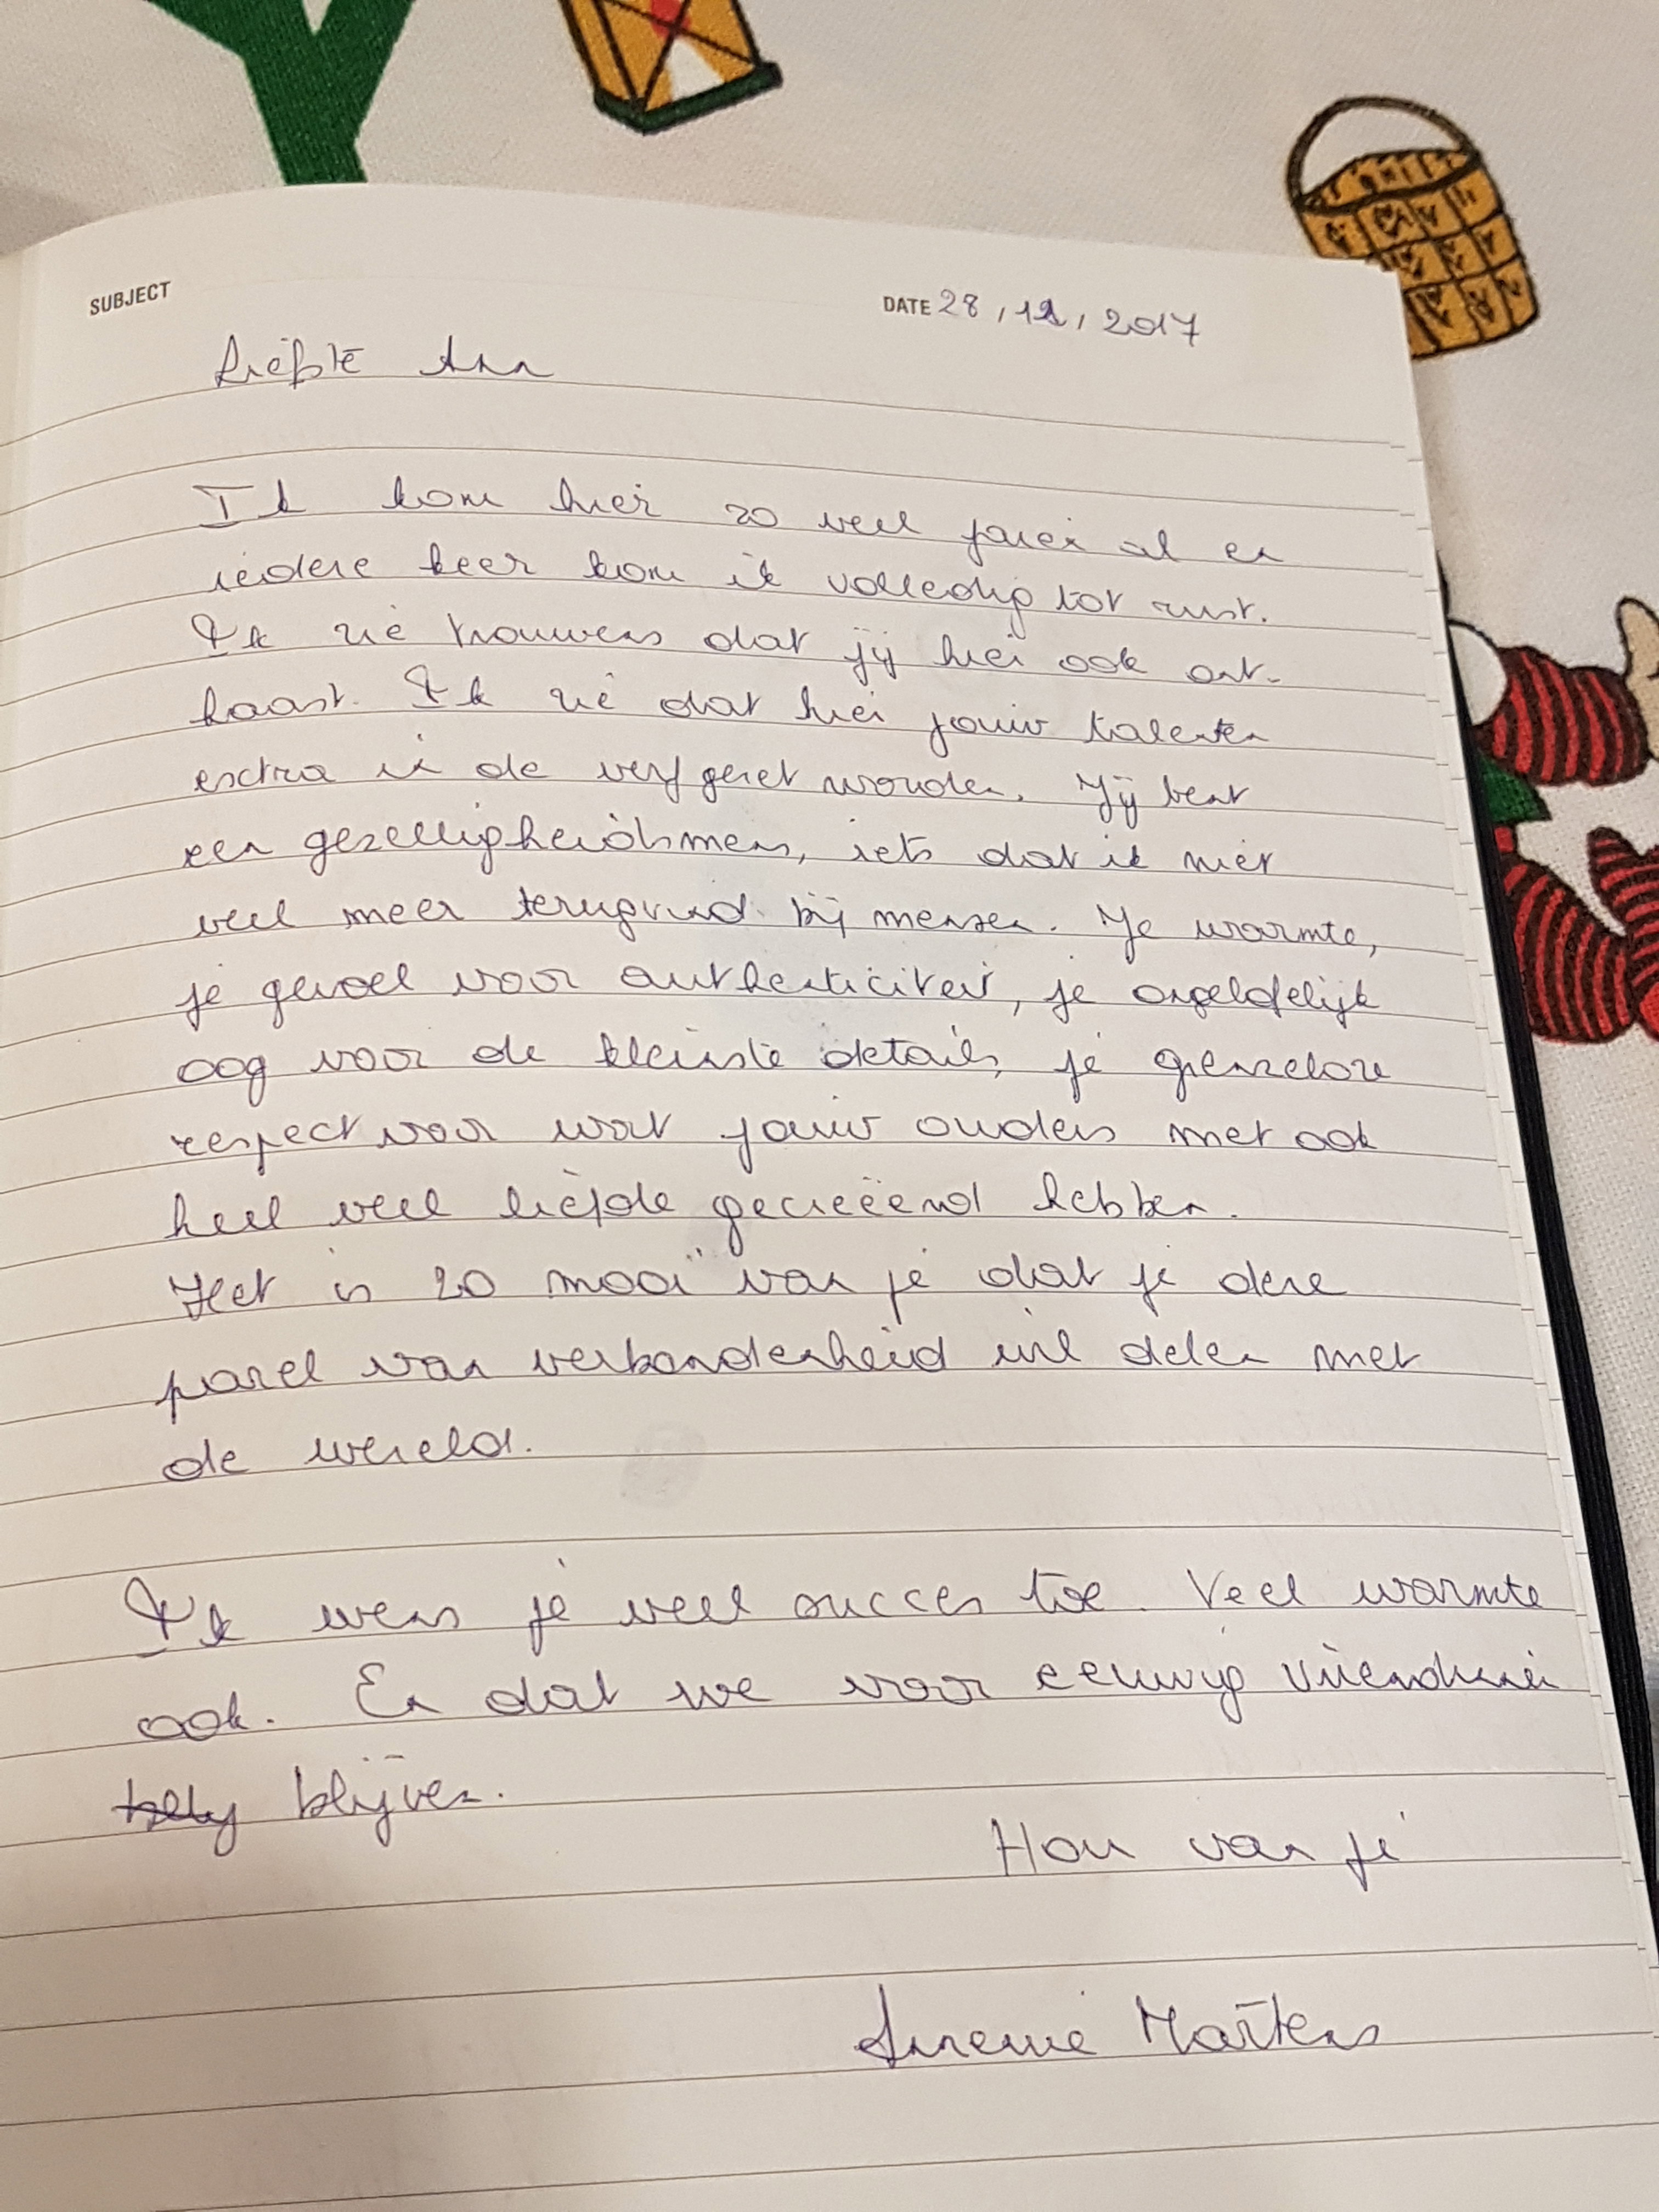 SUBJECT
DATE 28/12/2017
Liefste Ann
Ik kom hier zo veel jaren al en
iedere keer kom ik volledig tot rust.
Ik zie trouwens dat jij hier ook ont-
haast. Ik zie dat hier jouw talenten
extra in de verf gezet worden. Jij bent
een gezelligheidsmens, iets dat ik niet
veel meer terugvind bij mensen. Je warmte,
je gevoel voor authenticiteit, je ongelofelijk
oog voor de kleinste details, je grenzeloze
respect voor wat jouw ouders met ook
heel veel liefde gecreëerd hebben.
Het is zo mooi van je dat je deze
parel van verbondenheid wil delen met
de wereld.
Ik wens je veel succes toe. Veel warmte
ook. En dat we voor eeuwig vriendinnen
blijven.
Hou van je
Annemie Martens